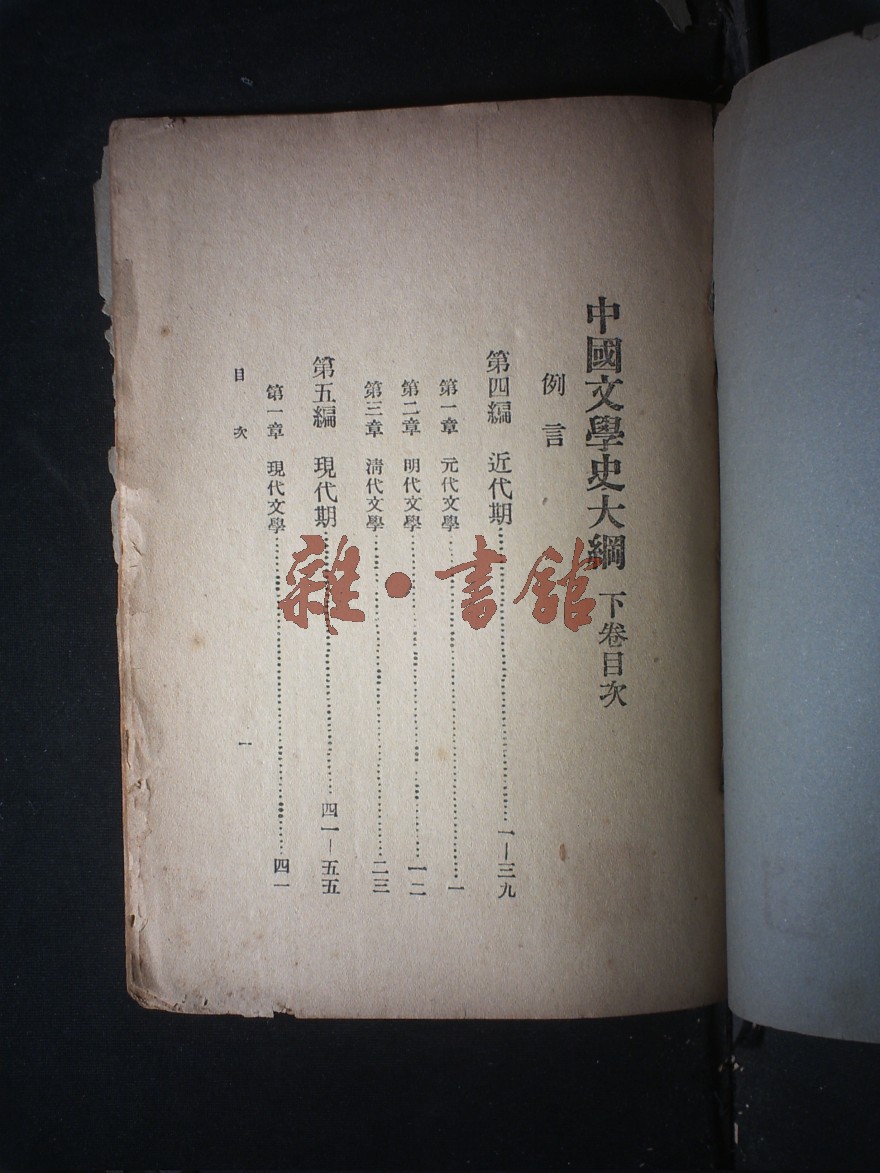 中國文學史大綱 下卷目次
例言
第四編 近代期……一—三九
第一章 元代文學……一
第二章 明代文學……一二
第三章 清代文學……二三
第五編 現代期……四一—五五
第一章 現代文學……四一
目次 一
雜·書館